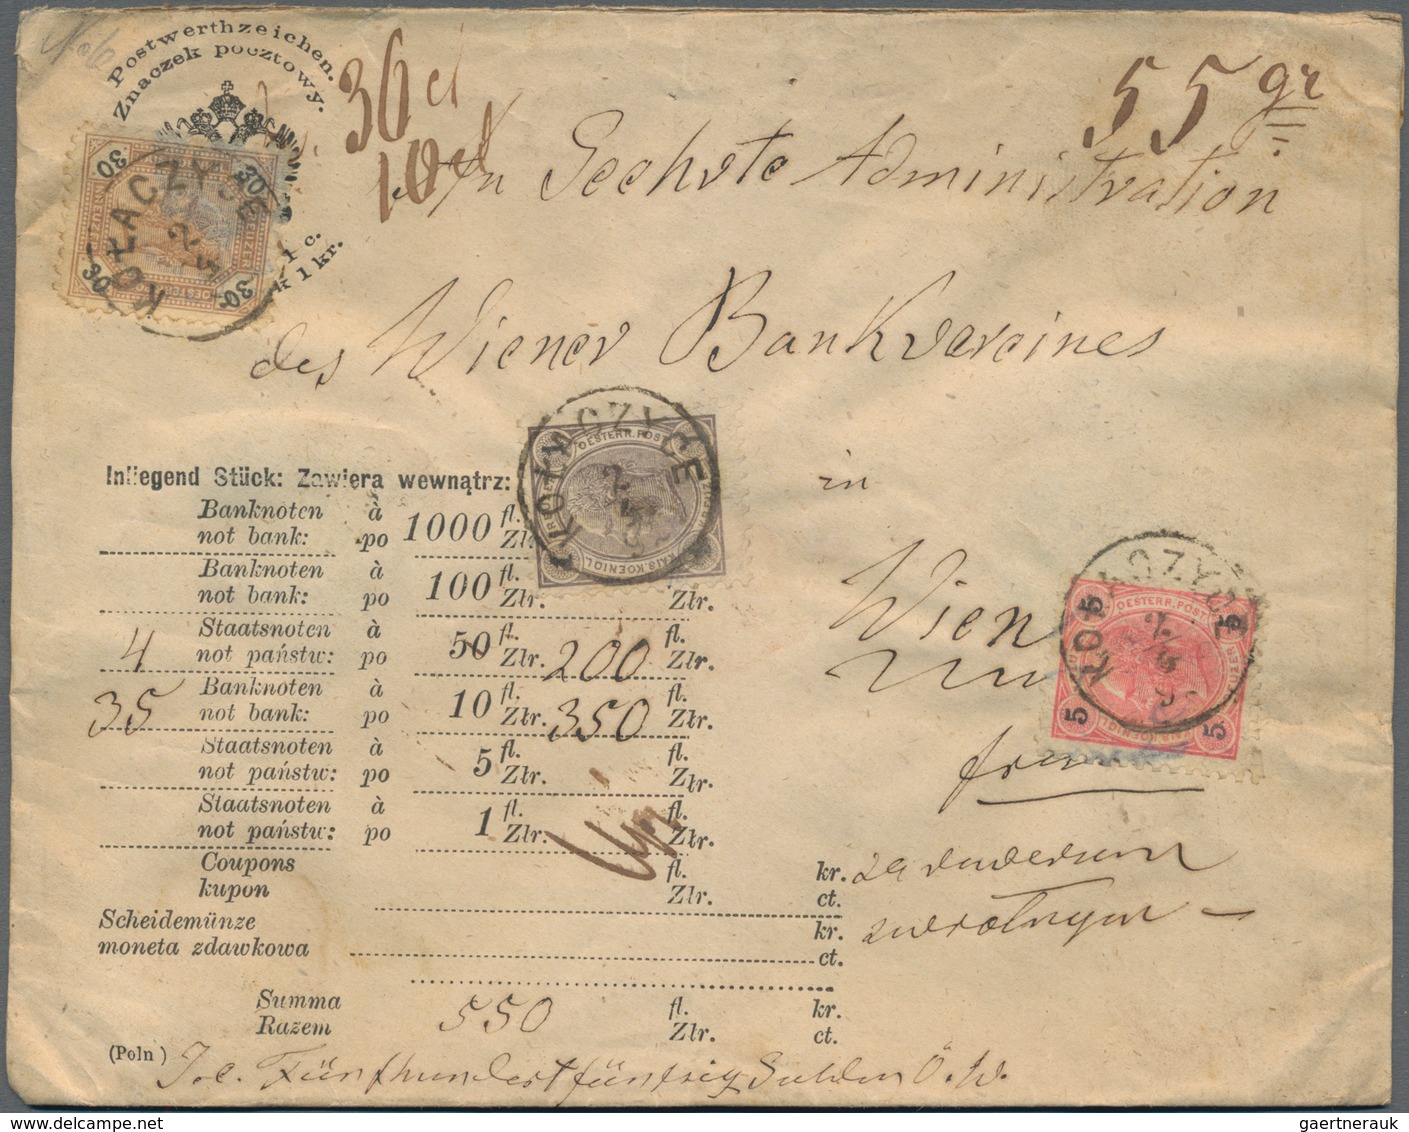 Postwerthzeichen.
Znaczek pocztowy.
36 ct
10 ct
55 gr
30 30 30 30
KOŁACZYCE
1 c.
k 1 kr.
An Sechste Administration
des Wiener Bankvereines
in
Wien
OESTERR. POST
KAIS. KOENIGL
KOŁACZYCE
5 5 5 5
OESTERR. POST
KOŁACZYCE
Inliegend Stück: Zawiera wewnątrz:
Banknoten à 1000 fl.
not bank: po Złr.
Banknoten à 100 fl.
not bank: po Złr. Złr.
4 Staatsnoten à 50 fl. 200 fl.
not państw: po Złr. Złr.
35 Banknoten à 10 fl. 350 fl.
not bank: po Złr. Złr.
Staatsnoten à 5 fl. fl.
not państw: po Złr. Złr.
Staatsnoten à 1 fl. fl.
not państw: po Złr. Złr.
Coupons fl. kr.
kupon Złr. ct.
za dowodem
zwrotnym
Scheidemünze kr.
moneta zdawkowa ct.
Summa 550 fl. kr.
Razem Złr. ct.
(Poln) Fünfhundertfünfzig Gulden Ö. W.
© gaertnerauk / delcampe.net